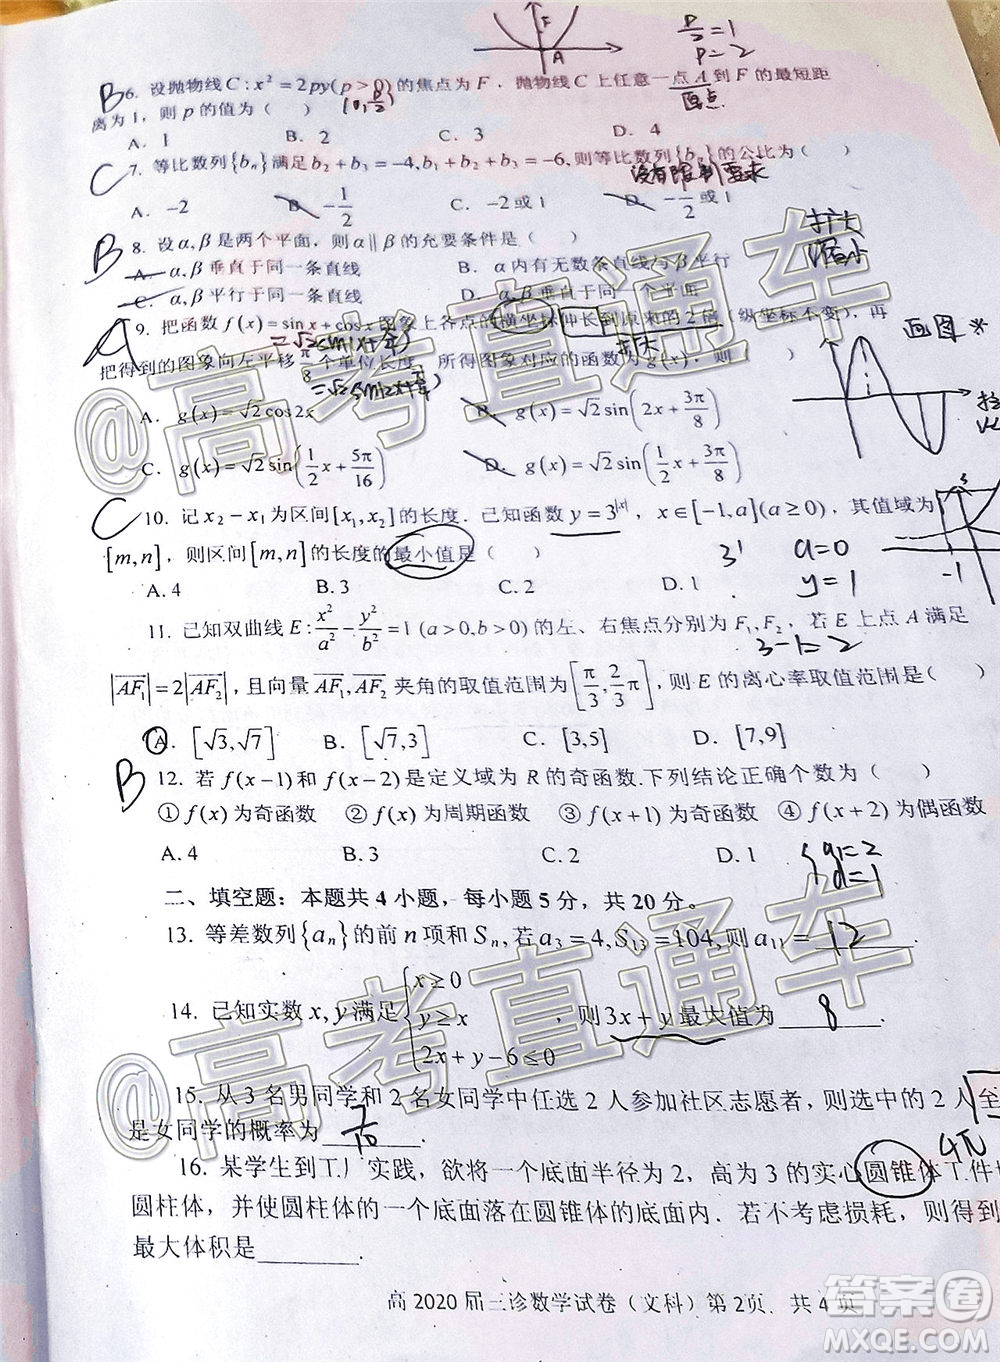 p/2 = 1
p = 2
F
A
B 6. 设抛物线 C : x² = 2py(p > 0) 的焦点为 F，抛物线 C 上任意一点 A 到 F 的最短距
离为 1，则 p 的值为（ ） (0, p/2) 原点
A. 1 B. 2 C. 3 D. 4
C 7. 等比数列{bₙ}满足 b₂ + b₃ = -4, b₄ + b₅ = -6, 则等比数列{bₙ}的公比为（ ）
没有限制要求
A. -2 B. -1/2 C. -2或1 D. -1/2或1
B 8. 设 α, β 是两个平面，则 α ∥ β 的充要条件是（ ）
扩大
缩小
A. α, β 垂直于同一条直线 B. α 内有无数条直线与 β 平行
C. α, β 平行于同一条直线 D. α, β 垂直于同一个平面
A 9. 把函数 f(x) = sin x + cos x 图象上各点的横坐标伸长到原来的 2 倍（纵坐标不变），再
= √2 sin(x + π/4) 扩大 画图 *
把得到的图象向左平移 π/8 个单位长度，所得图象对应的函数为 g(x)，则（ ）
A. g(x) = √2 cos 2x B. g(x) = √2 sin(2x + 3π/8)
C. g(x) = √2 sin(1/2 x + 5π/16) D. g(x) = √2 sin(1/2 x + 3π/8)
C 10. 记 x₂ - x₁ 为区间 [x₁, x₂] 的长度. 已知函数 y = 3^|x|， x ∈ [-1, a](a ≥ 0)，其值域为
[m, n]，则区间 [m, n] 的长度的最小值是（ ） 3¹ a = 0
-1
A. 4 B. 3 C. 2 D. 1 y = 1
11. 已知双曲线 E : x²/a² - y²/b² = 1 (a > 0, b > 0) 的左、右焦点分别为 F₁, F₂，若 E 上点 A 满足
3 - 1 = 2
|AF₁| = 2|AF₂|，且向量 AF₁, AF₂ 夹角的取值范围为 [π/3, 2/3 π]，则 E 的离心率取值范围是（ ）
A. [√3, √7] B. [√7, 3] C. [3, 5] D. [7, 9]
B 12. 若 f(x-1) 和 f(x-2) 是定义域为 R 的奇函数. 下列结论正确个数为（ ）
① f(x) 为奇函数 ② f(x) 为周期函数 ③ f(x+1) 为奇函数 ④ f(x+2) 为偶函数
A. 4 B. 3 C. 2 D. 1
a₁ = 2
d = 1
二、填空题：本题共 4 小题，每小题 5 分，共 20 分。
13. 等差数列{aₙ}的前 n 项和 Sₙ, 若 a₃ = 4, S₁₃ = 104, 则 a₁₁ = 12.
14. 已知实数 x, y 满足 { x ≥ 0
y ≥ x
2x + y - 6 ≤ 0
，则 3x + y 最大值为 8.
15. 从 3 名男同学和 2 名女同学中任选 2 人参加社区志愿者，则选中的 2 人至
是女同学的概率为 7/10.
4π
16. 某学生到工厂实践，欲将一个底面半径为 2，高为 3 的实心圆锥体工件
圆柱体，并使圆柱体的一个底面落在圆锥体的底面内. 若不考虑损耗，则得到
最大体积是.
高 2020 届三诊数学试卷（文科）第 2 页. 共 4 页
@高考直通车
@高考直通车
答案圈
MXQE.COM